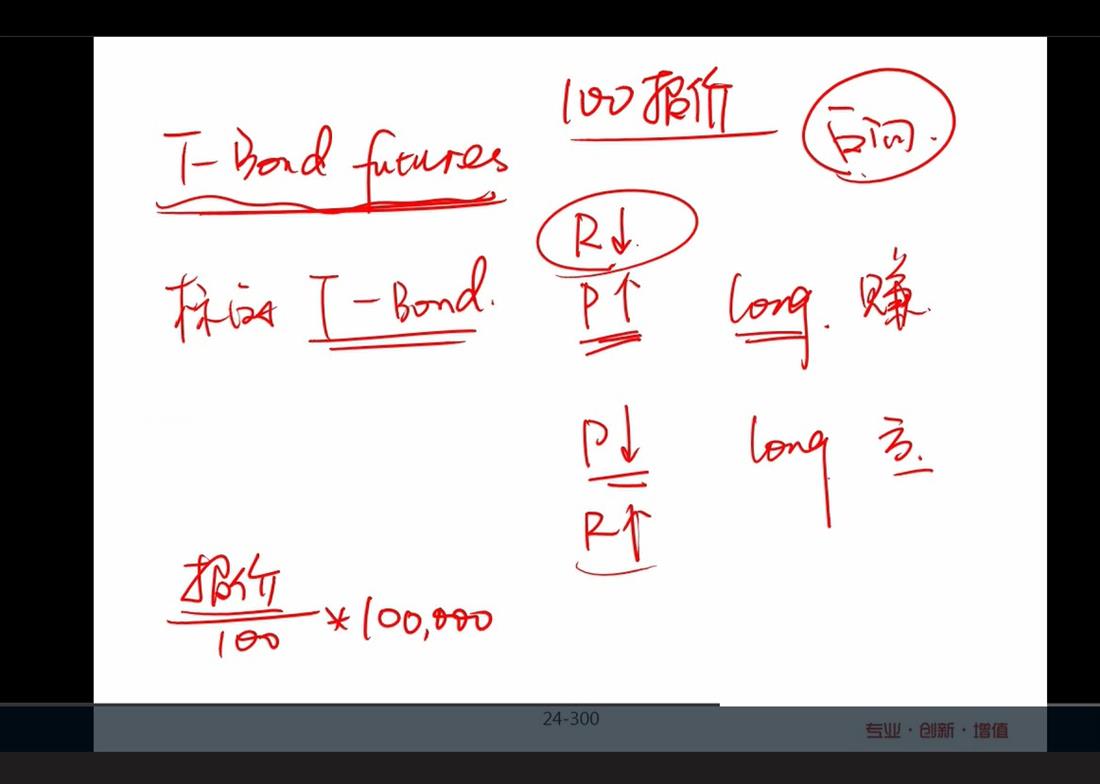 100报价
T-Bond futures
R↓
标的 T-Bond.
P↑
long. 赚
P↓
long 亏.
R↑
报价
100
* 100,000
24-300
专业·创新·增值